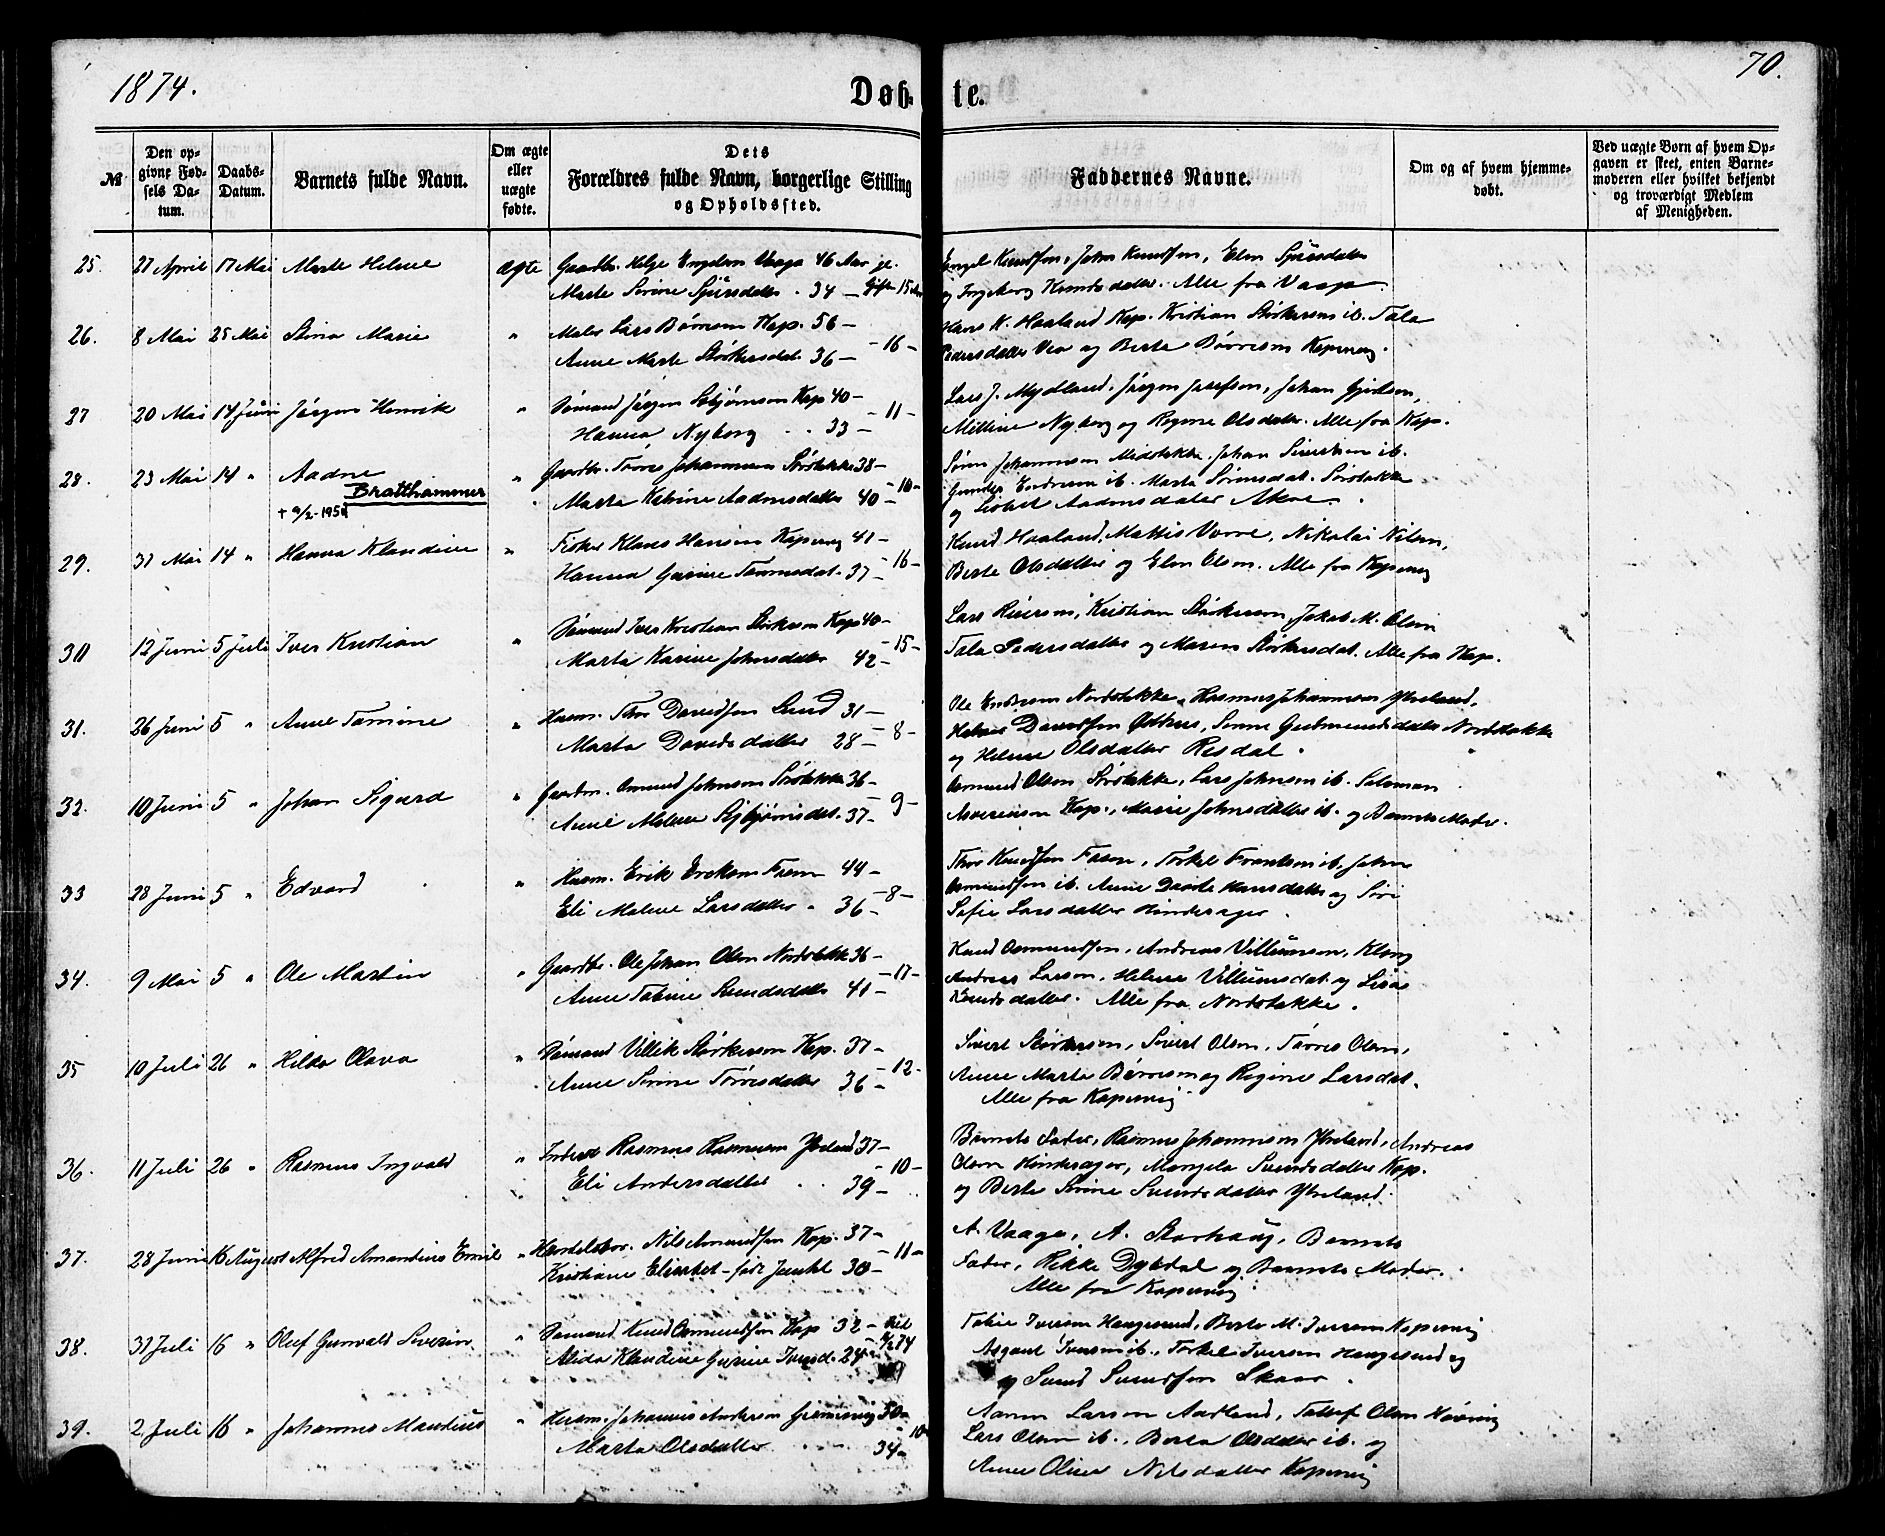 1874.
Døb-
te.
70.
№
Den op-
givne Fød-
sels Da-
tum.
Daabs-
Datum.
Barnets fulde Navn.
Om ægte
eller
uægte
fødte.
Dets
Forældres fulde Navn, borgerlige Stilling
og Opholdssted.
Faddernes Navne.
Om og af hvem hjemme-
døbt.
Ved uægte Børn af hvem Op-
gaven er skeet, enten Barne-
moderen eller hvilket bekjendt
og troværdigt Medlem
af Menigheden.
25. 27 April 17 Mai Marte Helene ægte Gaardbr. Helge Engelsen Vaage 46 Aar gl.
Marte Serine Sjursdatter 34 — Gift 15 Aar
Engel Knudsen, John Knudsen, Elen Sjursdatter
og Ingeborg Knudsdatter. Alle fra Vaage
26. 8 Mai 25 Mai Stina Marie " Maler Lars Børresen Kop. 56 —
Anne Marte Størkersdat. 36 — - 16 -
Hans K. Haaland Kop. Kristian Størkersen ib. Tala
Pedersdatter Vea og Berte Børresen Kopervig.
27 20 Mai 14 Juni Jørgen Henrik " Sømand Jørgen Asbjørnsen Kop 40 —
Hanna Nyborg . . 33 — - 11 -
Lars J. Mydland. Jørgen Josefsen, Johan Gjertsen,
Milline Nyborg og Regine Olsdatter. Alle fra Kop.
28. 23 Mai 14 " Aadne " Gaardbr. Tørres Johannesen Sørstokke 38 —
Bratthammer
† 9/2-1954
Marta Katrine Aadnesdatter 40 — - 10 -
Søren Johannesen Midtstokke. Johan Sivertsen ib.
Endresen ib. Marta Sørensdat. Sørstokke
og Aadnesdatter
29. 31 Mai 14 " Hanna Klaudine " Fisker Klaus Hansen Kopervig 41 —
Hanna Gurine Tønnesdat. 37 — - 16 -
Knud Haaland, Mattis Vorre, Nikolai Nilsen,
Berte Olsdatter og Elen Olsen. Alle fra Kopervig
30 12 Juni 5 Juli Iver Kristian " Sømand Iver Kristian Størksen Kop 40 —
Marta Karine Johnsdatter 42 — - 15 -
Lars Kristian Størkersen, Jakob M. Olsen
Tala Pedersdatter og Maren Størkersdat. Alle fra Kop.
31. 26 Juni 5 " Anne Tomine " Husm. Thor Davidsen Lund 31 —
Marta Davidsdatter 28 — - 8 -
Ole Endresen Nordstokke, Rasmus Johannesen Ytreland,
Davidsen Gudmundsdatter Nordstokke
og Helene Olsdatter Risdal.
32. 10 Juni 5 " Johan Sigurd " Gaardm. Osmund Johnsen Sørstokke 36 —
Anne Malene 37 — - 9 -
Osmund Olsen Sørstokke, Lars Johnsen ib. Salomon
Asserensen Kop., Marie Johnsdatter ib. og Barnets Moder.
33 28 Juni 5 " Edvard " Husm. Erik Erksen 44 —
Eli Malene Larsdatter " 36 — - 8 -
Thor Knudsen Torkel ib. John
Osmundsen ib. Anne Dorte Hansdatter og Siri
Sofie Larsdatter Hinderager.
34. 9 Mai 5 " Ole Martin " Gaardbr. Ole Johan Olsen Nordstokke 36 —
Anne Tobine 41 — - 17 -
Knud Osmundsen, Andreas Villumsen, Klaus
Andreas Larsen, Helene Villumsdat. og
Knudsdatter. Alle fra Nordstokke.
35 10 Juli 26 " Hilda Olava " Sømand Villik Størkersen Kop. 37 —
Anne Serine Tørresdatter 36 — - 12 -
Sivert Størkersen, Sivert Olsen, Tørres Olsen,
Anne Marta Børresen og Regine Larsdat.
Alle fra Kopervig
36. 11 Juli 26 " Rasmus Ingvald " Inderst Rasmus Rasmusen Ytreland 37 —
Eli Andersdatter . . 39 — - 10 -
Barnets Fader, Rasmus Johannesen Ytreland, Andreas
Olsen Hinderager, Mangela Svendsdatter Kop.
og Berte Serine Svendsdatter Ytreland.
37. 28 Juni 16 August Alfred Amandius Emil " Handelsbor. Nils Amundsen Kop. 37 —
Kristiane Elisabet — født Juuhl 30 — - 11 -
A. Vaage, A. Storhaug, Barnets
Fader, Rikke Dybdal og Barnets Moder.
Alle fra Kopervig
38. 31 Juli 16 " Oluf Gunvald Severin " Sømand Knud Osmundsen Kop 32 —
Alida Klaudine Gurine Iversd. 24 —
Tobie Iversen Haugesund, Berte M. Iversen Kopervig
Asgaut Iversen ib., Torkel Iversen Haugesund og
og Svend Svendsen Skaar.
39. 2 Juli 16 " Johannes Mandius " Husm. Johannes Andersen 50 —
Marta Olsdatter 34 — 10 -
Aanen Larsen Aadland, Tollef Olsen
Lars Olsen ib., Berta Olsdatter ib. og
Anne Oline Nilsdatter Kopervig